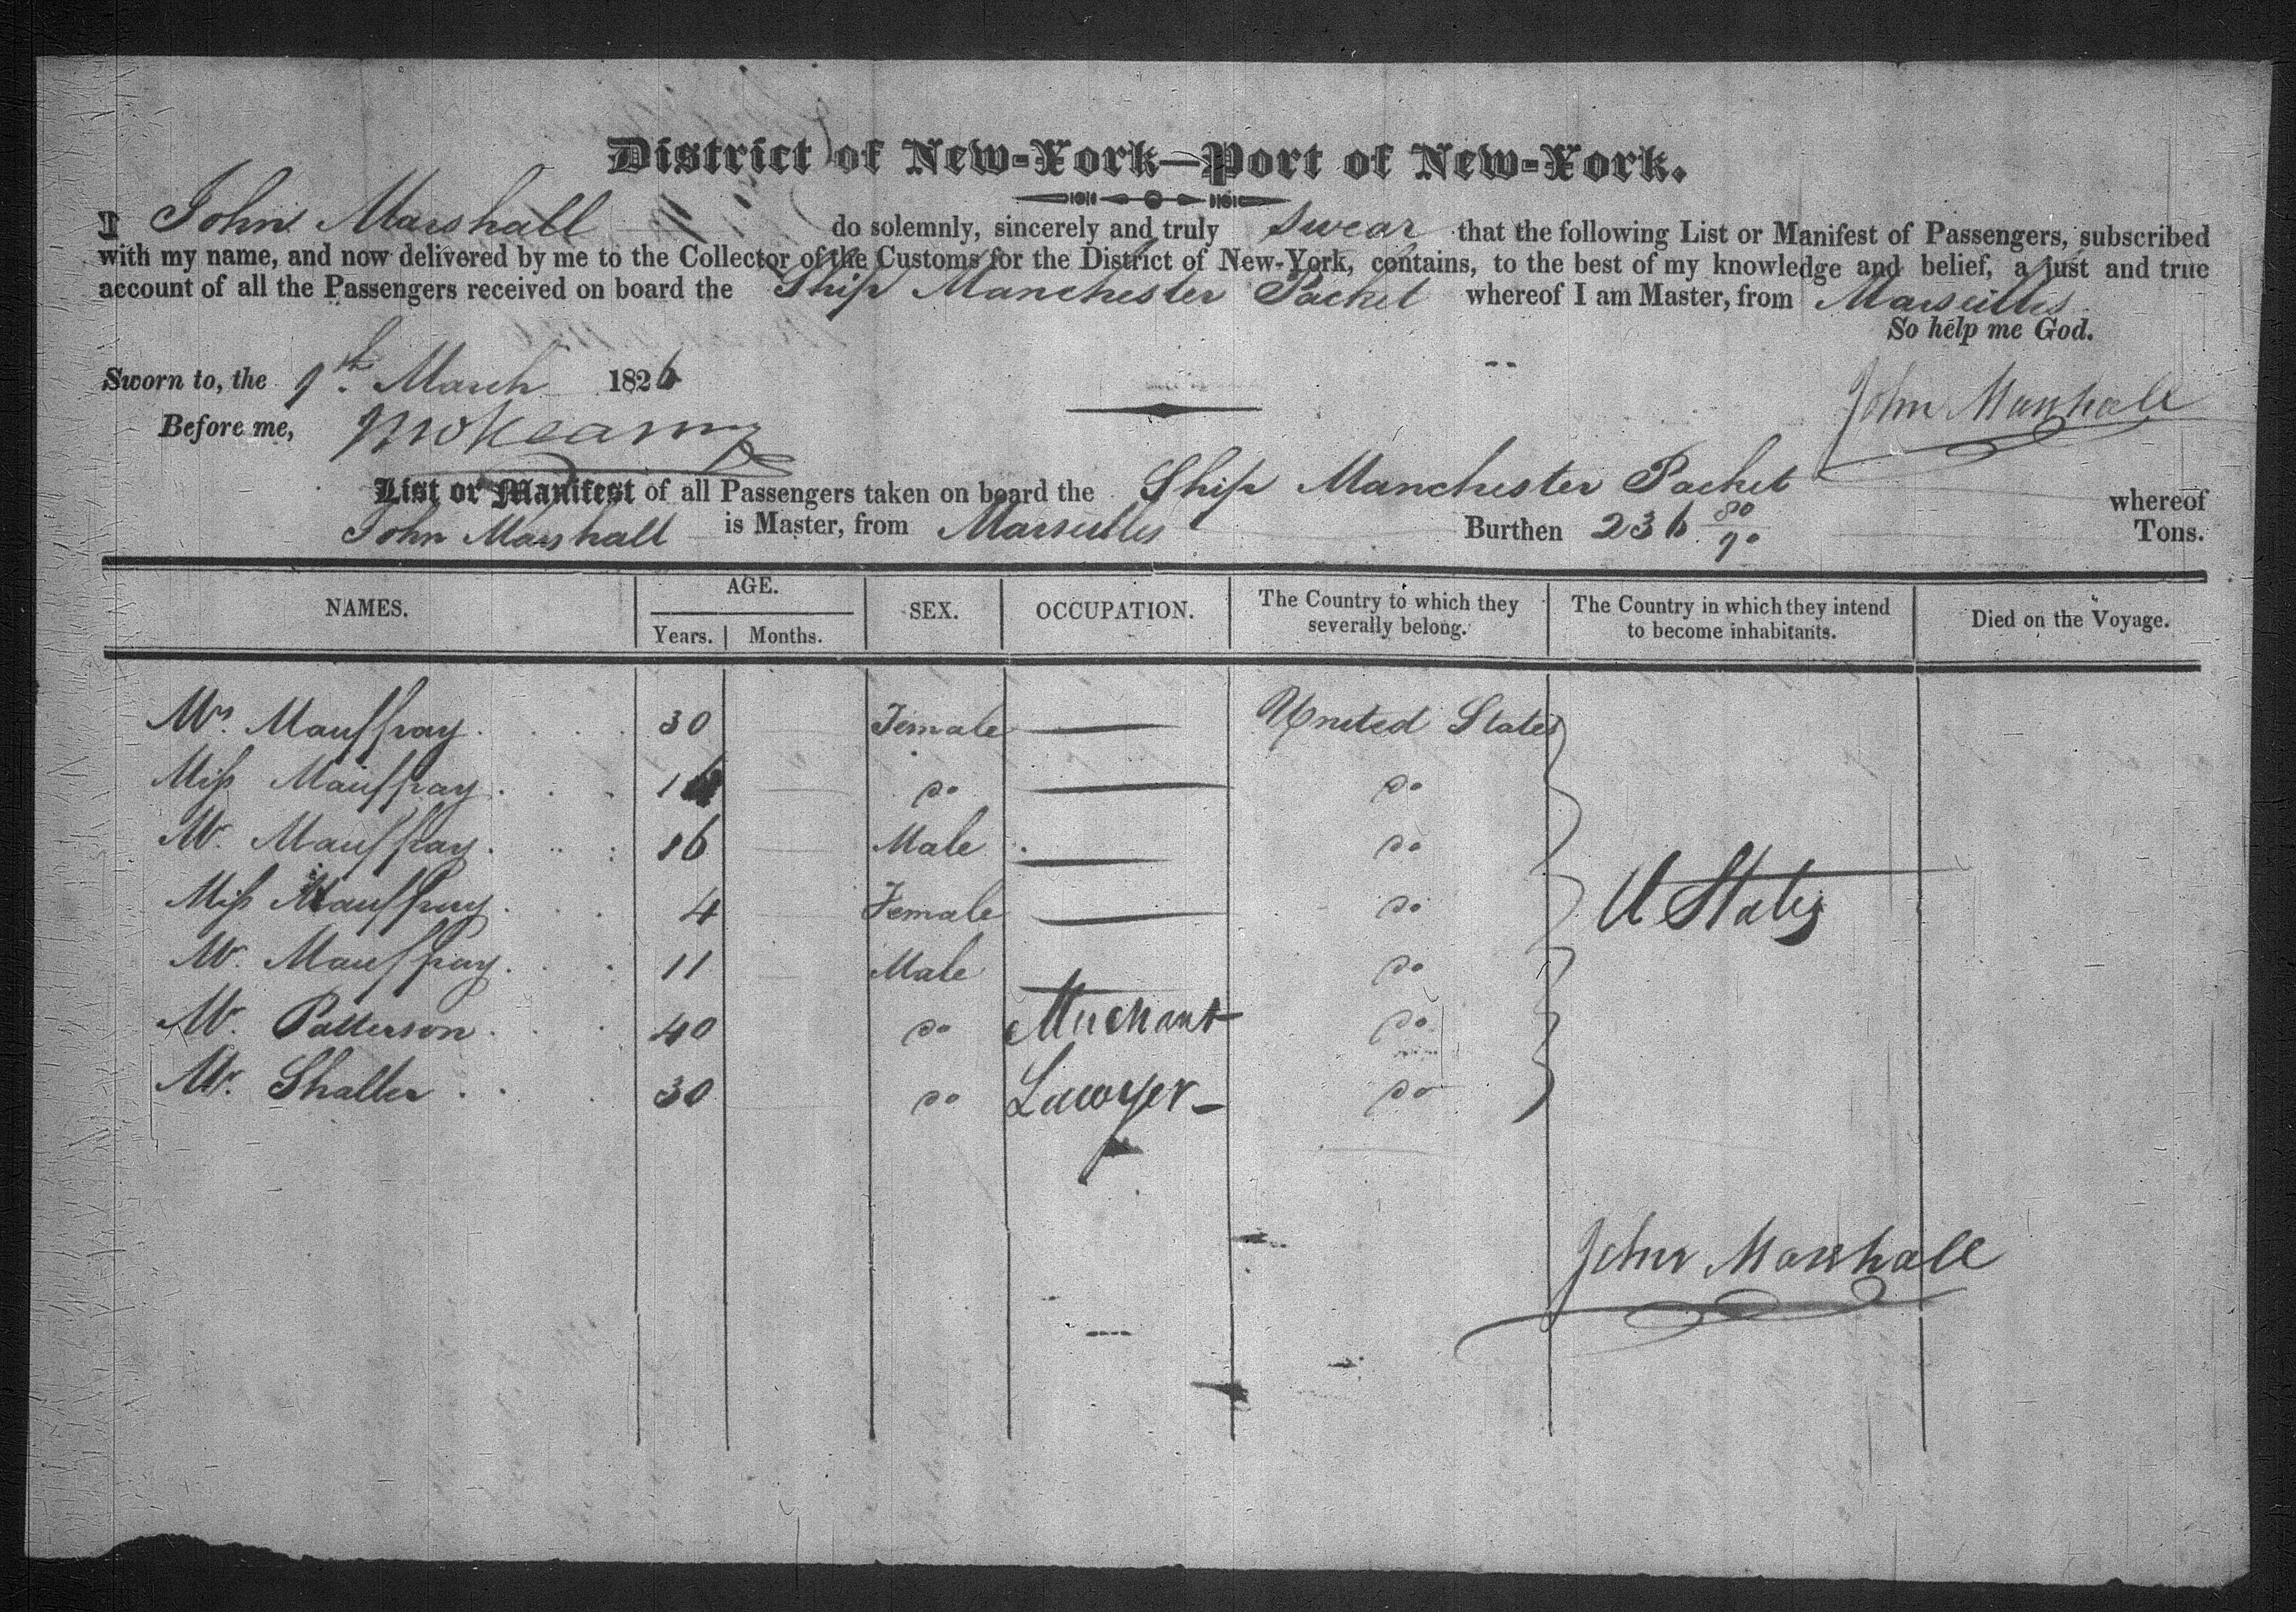 District of New-York—Port of New-York.
I John Marshall do solemnly, sincerely and truly swear that the following List or Manifest of Passengers, subscribed
with my name, and now delivered by me to the Collector of the Customs for the District of New-York, contains, to the best of my knowledge and belief, a just and true
account of all the Passengers received on board the Ship Manchester Packet whereof I am Master, from Marseilles
So help me God.
Sworn to, the 9th March 1826
John Marshall
Before me,
List or Manifest of all Passengers taken on board the Ship Manchester Packet whereof
John Marshall is Master, from Marseilles Burthen 236 80/90 Tons.
NAMES. AGE. Years. Months. SEX. OCCUPATION. The Country to which they severally belong. The Country in which they intend to become inhabitants. Died on the Voyage.
Mrs Mauffray 30 Female — United States
Miss Mauffray — do — do
Mr. Mauffray 16 Male — do
Miss Mauffray 4 Female — do U States
Mr. Mauffray 11 Male — do
Mr. Patterson 40 do Merchant do
Mr. Shaller 30 do Lawyer do
John Marshall